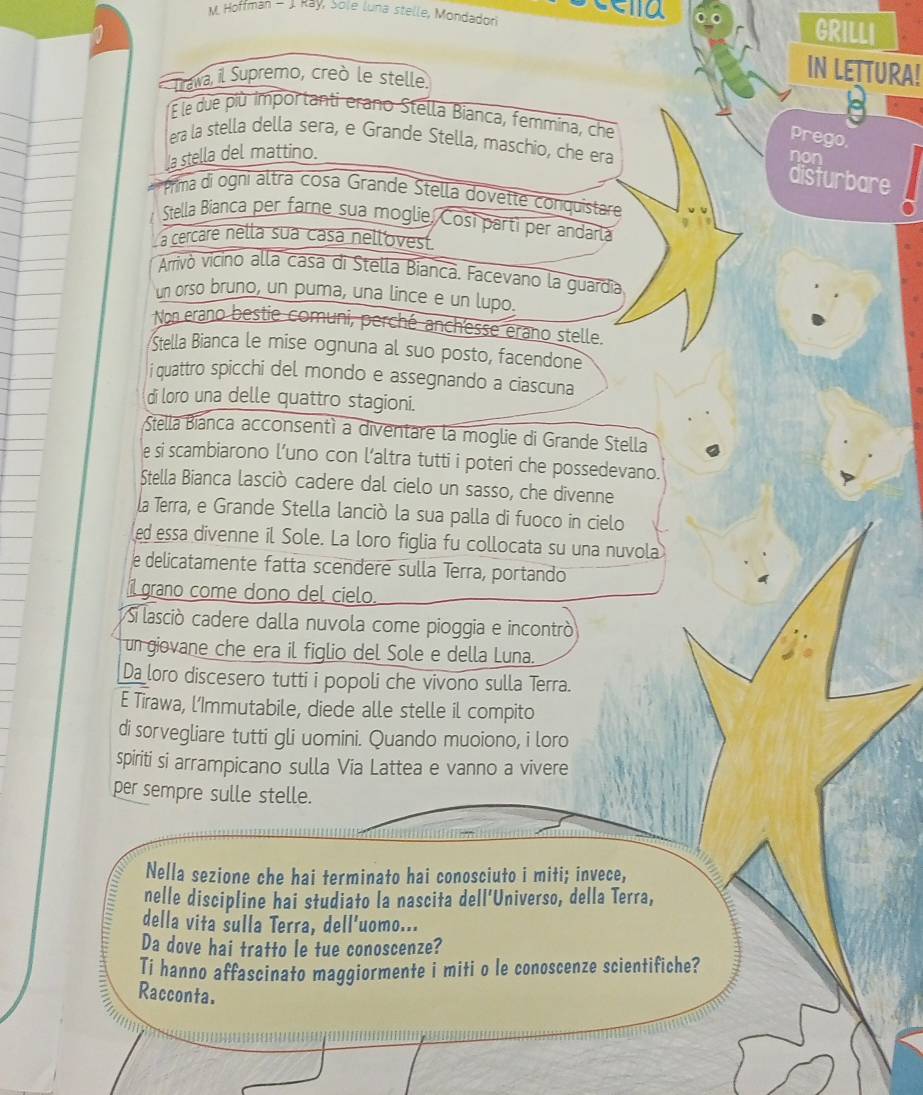 M. Hoffman - J. Ray, Sole luna stelle, Mondadori
GRILLI
IN LETTURA!
Prego,
non
disturbare
Tirawa, il Supremo, creò le stelle.
E le due più importanti erano Stella Bianca, femmina, che
era la stella della sera, e Grande Stella, maschio, che era
la stella del mattino.
Prima di ogni altra cosa Grande Stella dovette conquistare
Stella Bianca per farne sua moglie. Così partì per andarla
a cercare nella sua casa nell'ovest.
Arrivò vicino alla casa di Stella Bianca. Facevano la guardia
un orso bruno, un puma, una lince e un lupo.
Non erano bestie comuni, perché anch'esse erano stelle.
Stella Bianca le mise ognuna al suo posto, facendone
i quattro spicchi del mondo e assegnando a ciascuna
di loro una delle quattro stagioni.
Stella Bianca acconsentì a diventare la moglie di Grande Stella
e si scambiarono l'uno con l'altra tutti i poteri che possedevano.
Stella Bianca lasciò cadere dal cielo un sasso, che divenne
la Terra, e Grande Stella lanciò la sua palla di fuoco in cielo
ed essa divenne il Sole. La loro figlia fu collocata su una nuvola
e delicatamente fatta scendere sulla Terra, portando
il grano come dono del cielo.
Si lasciò cadere dalla nuvola come pioggia e incontrò
un giovane che era il figlio del Sole e della Luna.
Da loro discesero tutti i popoli che vivono sulla Terra.
E Tirawa, l'Immutabile, diede alle stelle il compito
di sorvegliare tutti gli uomini. Quando muoiono, i loro
spiriti si arrampicano sulla Via Lattea e vanno a vivere
per sempre sulle stelle.
Nella sezione che hai terminato hai conosciuto i miti; invece,
nelle discipline hai studiato la nascita dell'Universo, della Terra,
della vita sulla Terra, dell'uomo...
Da dove hai tratto le tue conoscenze?
Ti hanno affascinato maggiormente i miti o le conoscenze scientifiche?
Racconta.